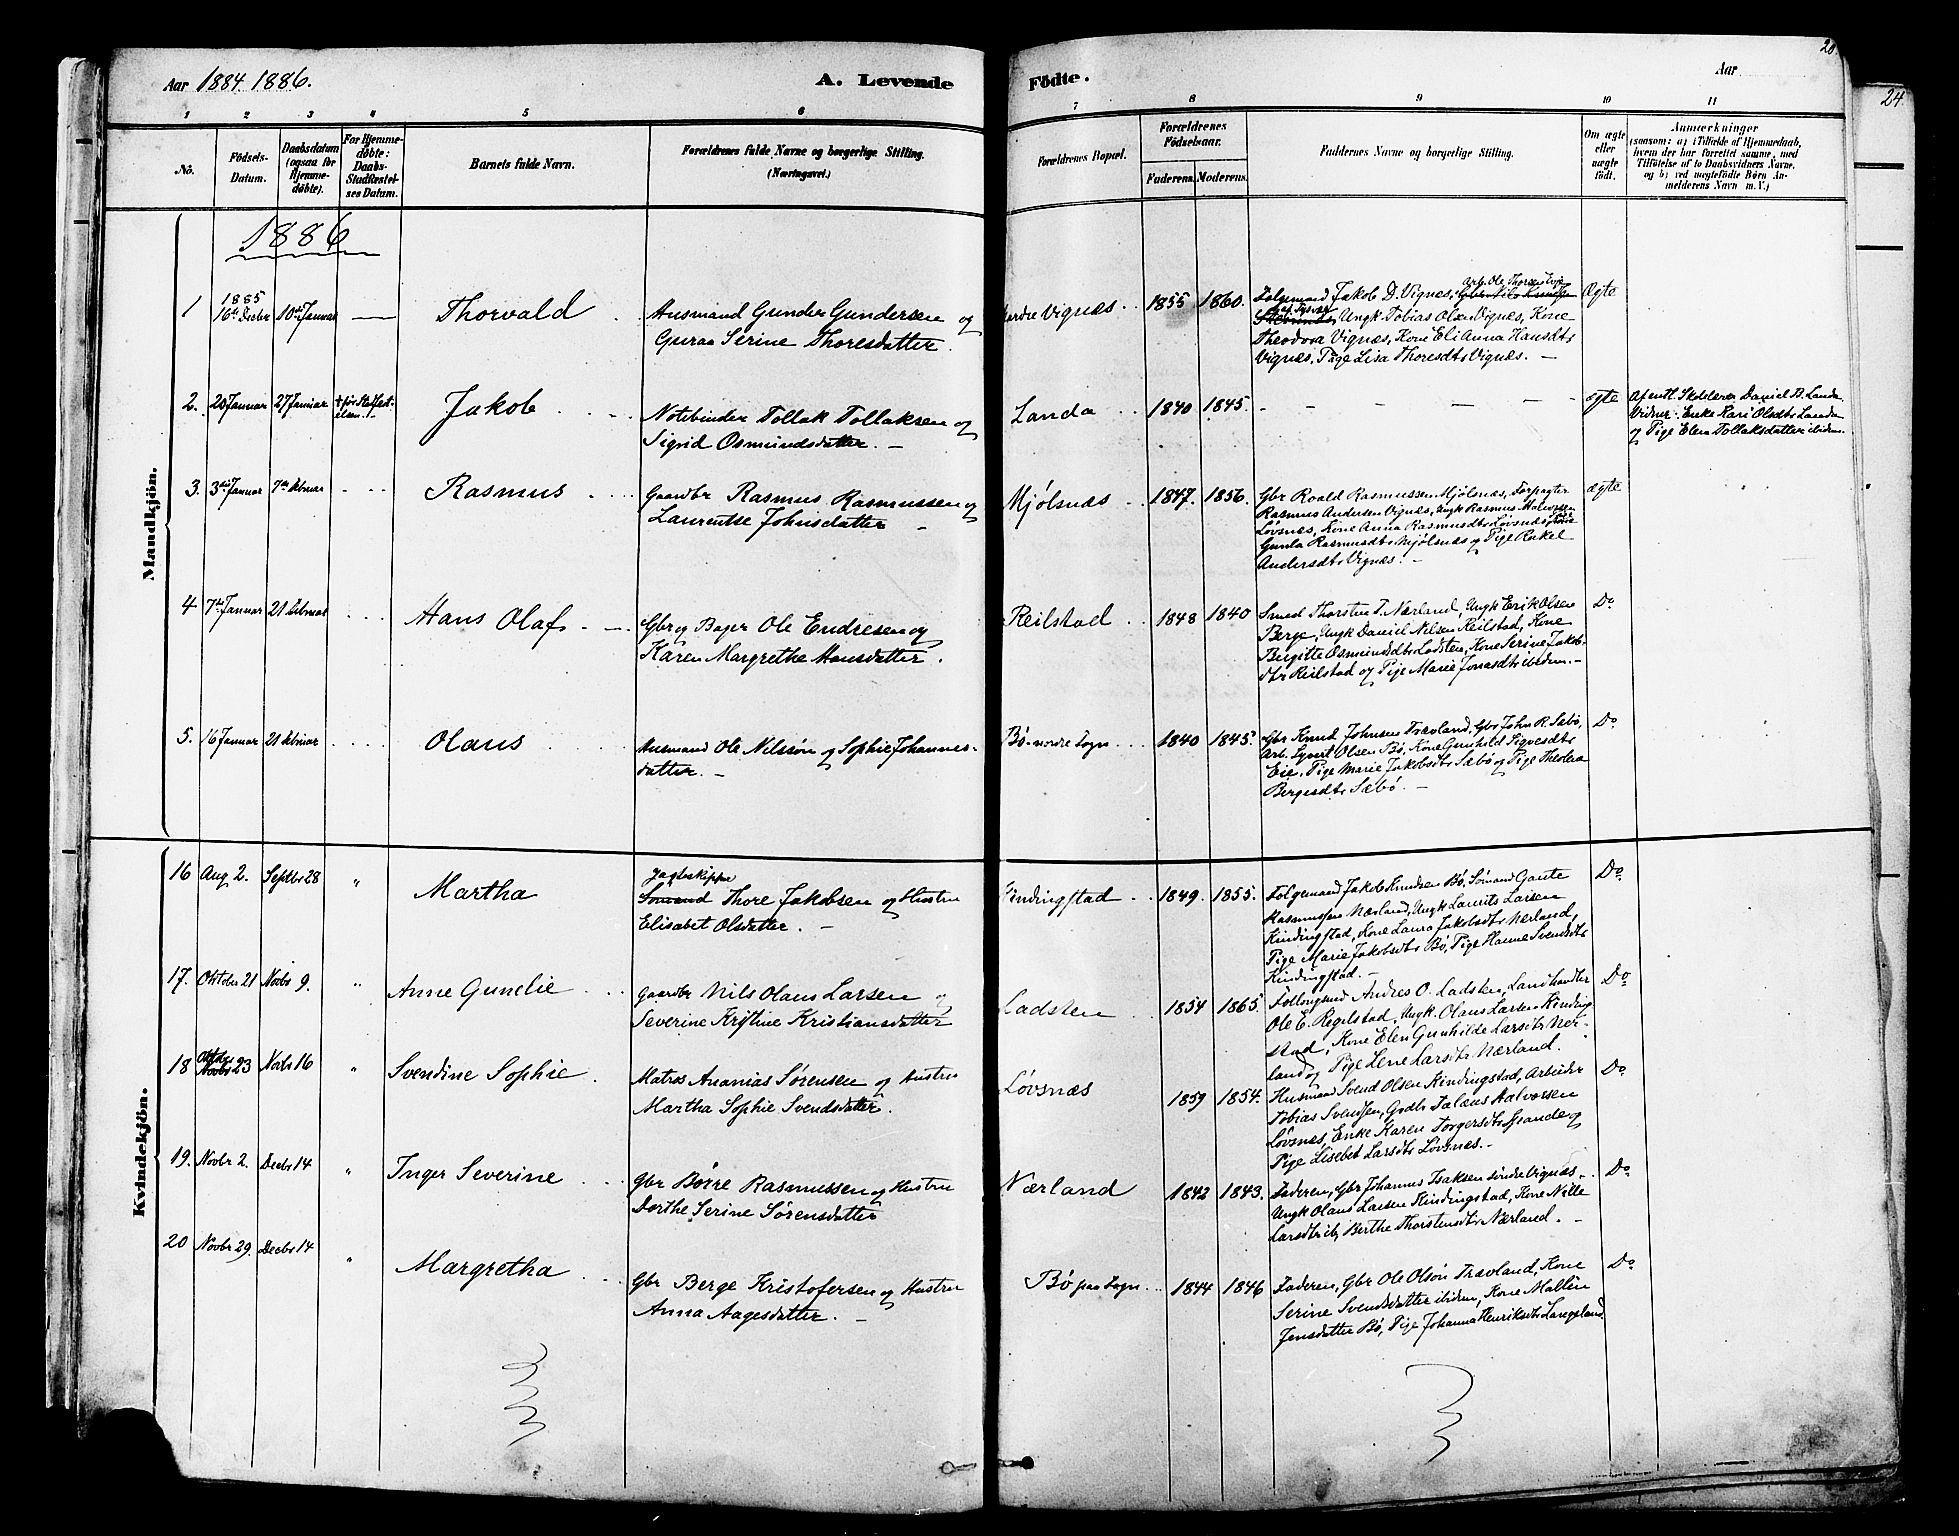 Aar 1884. 1886.
A. Levende
Fødte.
Aar
20.
24
1 2 3 4 5 6 7 8 9 10 11
No.
Fødsels-
Datum.
Daabsdatum
(ogsaa for
Hjemme-
døbte).
For Hjemme-
døbte:
Daabs-
Stadfæstel-
ses Datum.
Barnets fulde Navn.
Forældrenes fulde Navne og borgerlige Stilling.
(Næringsvei.)
Forældrenes Bopæl.
Forældrenes
Fødselsaar.
Faderens. Moderens.
Faddernes Navne og borgerlige Stilling.
Om ægte
eller
uægte
født.
Anmærkninger
(saasom: a) i Tilfælde af Hjemmedaab,
hvem der har forrettet samme, med
Tilføielse af to Daabsvidners Navne,
og b) ved uægtefødte Børn An-
melderens Navn m. V.)
Mandkjøn.
1886
1
1885
16de Decbr
10de Januar
Thorvald
Husmand Gunder Gundersen og
Guraa Serine Thoresdatter.
Nordre Vignæs
1855 1860.
Arb. Ole Thorsen Eje
Folgemand Jakob D. Vignæs, Gbr Nils Knudsen
Ungk Tobias Olsen Vignæs, Kone
Theodora Vignæs, Kone Eli Anna Hansdtr
Vignæs, Pige Lisa Thoresdtr Vignæs. —
Ægte
2.
20 Januar
27 Januar
+ før Stadfæst-
elsen
Jakob
Notebinder Tollak Tollaksen og
Sigrid Osmundsdatter. —
Landa
1840 1845.
ægte
Af entl. Skolelærer Daniel B. Landa
Vidner: Enke Kari Olsdtr Landa
og Pige Elen Tollaksdatter ibidem.
3.
3die Januar
7de Februar
Rasmus
Gaardbr Rasmus Rasmussen og
Laurentse Johnsdatter —
Mjølsnæs
1847. 1856.
Gbr Roald Rasmussen Mjølsnæs, Forpagter
Rasmus Andersen Vignæs, Ungk Rasmus Halvorsen
Løvsnes, Kone Anna Rasmusdtr Løvsnæs, Kone
Gunla Rasmusdtr Mjølsnæs og Pige Rakel
Andersdtr Vignæs. —
ægte
4
7de Januar
21 Februar
Hans Olaf
Gbr og Bager Ole Endresen og
Karen Margrethe Hansdatter.
Reilstad
1848 1840
Smed Thorsten T. Nærland, Ungk Erik Olsen
Berge, Ungk Daniel Nilsen Reilstad, Kone
Birgitte Osmundsdtr Ladsten, Kone Serine Jakob-
dtr Reilstad og Pige Marie Jonasdtr ibidem. —
Do
5.
16 Januar
21 Februar
Olaus
Husmand Ole Nilssøn og Sophie Johannes-
datter. —
Bø nordre Sogn
1840 1845.
Gbr Knud Johnsen Trævland, Gbr John R. Sæbø,
Arb. Syvert Olsen Bø, Kone Gunhild Sigvesdtr
Eie, Pige Marie Jakobsdtr Sæbø og Pige Theolea
Bergesdtr Sæbø. —
Do
Kvindekjøn.
16
Aug 2.
Septbr 28
"
Martha
Jagtskipper
Sømand Thore Jakobsen og Hustru
Elisabet Olsdatter. —
Kindingstad
1849. 1855.
Folgemand Jakob Knudsen Bø, Sømand Gaute
Rasmussen Nærland, Ungk Laurits Larsen
Kindingstad, Kone Laura Jakobsdtr Nærland,
Pige Marie Jakobsdtr Bø, Pige Hanne Svendsdtr
Kindingstad. —
Do
17.
Oktober 21
Novbr 9.
"
Anne Gunelie
Gaardbr Nils Olaus Larsen og
Severine Kristine Kristiansdatter
Ladsten
1854 1865.
Andres O. Ladsten, Landhandler
Ole E. Regilstad, Ungk. Olaus Larsen Kinding-
stad, Kone Elen Gunhilde Larsdtr Nær-
land og Pige Lene Larsdtr Nærland.
Do
18
Oktbr
Novbr 23
Novbr 16
"
Svendine Sophie
Matros Ananias Sørensen og Hustru
Martha Sophie Svendsdatter.
Løvsnæs
1859 1854.
Husmand Svend Olsen Kindingstad, Arbeider
Tobias Svendsen, Gaardbr Talaus Halvorsen
Løvsnes, Enke Karen Torgersdtr Spande og
Pige Lisebet Larsdtr Løvsnes. —
Do
19.
Novbr 2.
Decbr 14
"
Inger Severine
Gbr Børre Rasmussen og Hustru
Dorthe Serine Sørensdatter
Nærland
1842 1843.
Faderen, Gbr Johannes Isaksen søndre Vignæs
Ungk Olaus Larsen Kindingstad, Kone Nille
Larsdtr ib, Berthe Thorstensdtr Nærland. —
Do
20
Novbr 29.
Decbr 14
"
Margretha
Gbr Berge Kristofersen og Hustru
Anna Aagesdatter. —
Bø paa Sogn
1844 1846
Faderen, Gbr Ole Olsøn Trævland, Kone
Serine Svendsdatter ibidem, Kone Mallen
Jensdatter Bø, Pige Johanna Henriksdtr Langeland.
Do